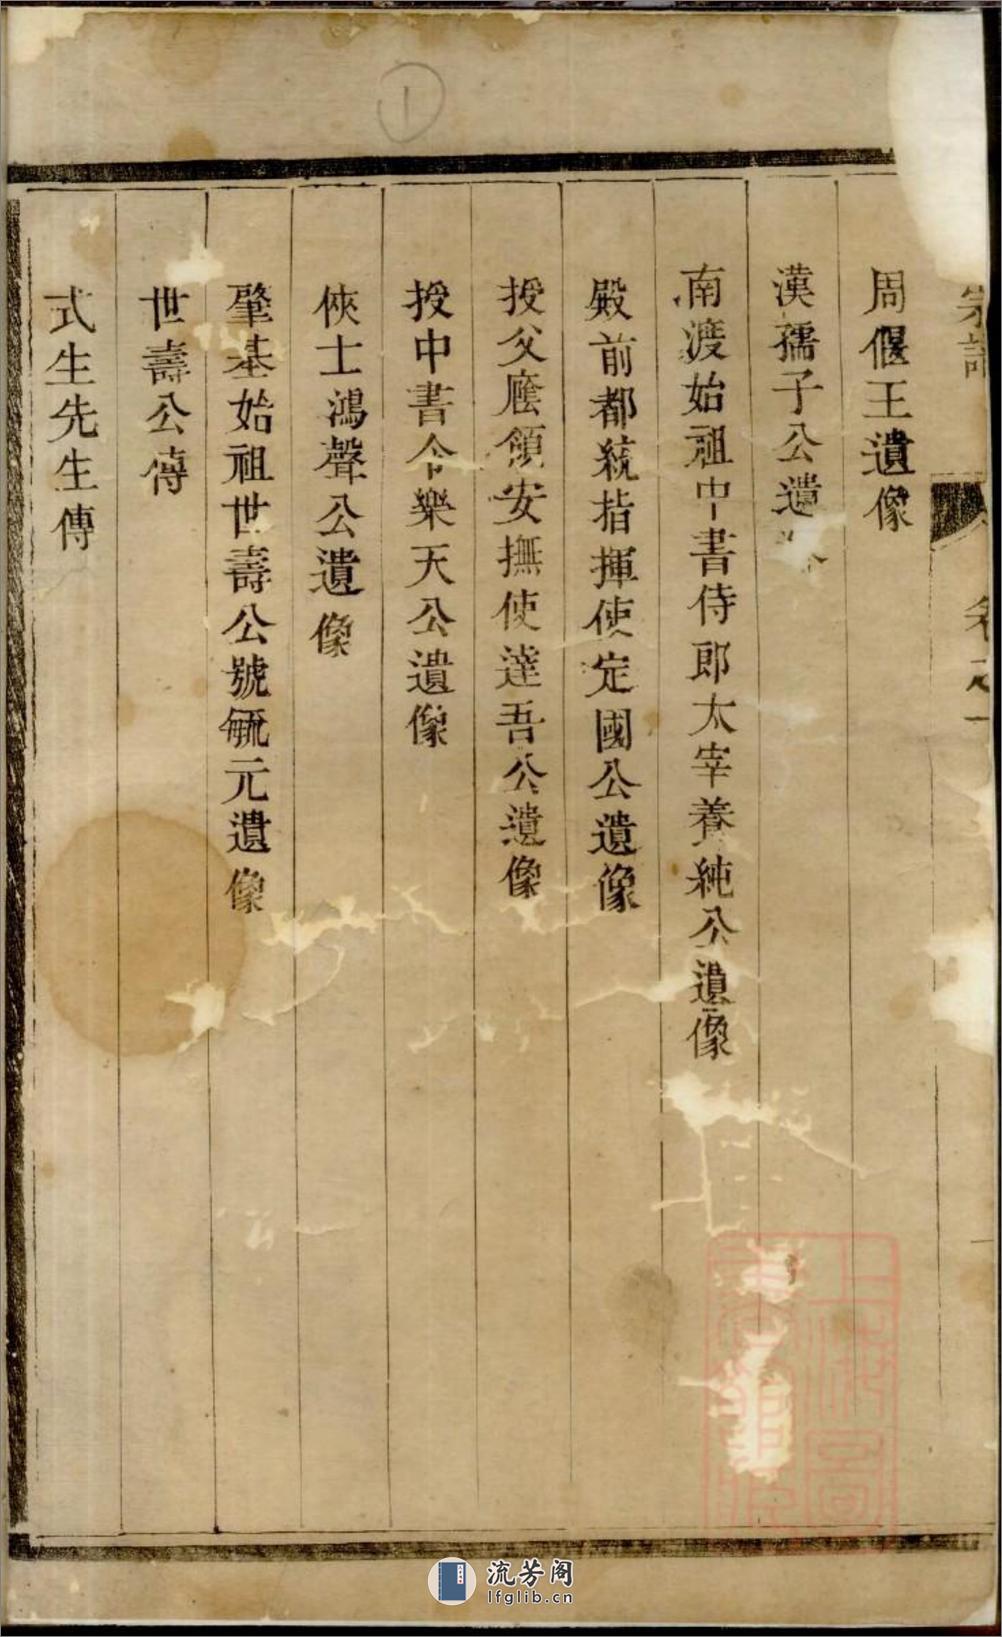 宗譜 卷之一
周偃王遺像
漢孺子公遺
南渡始祖中書侍郎太宰養純公遺像
殿前都統指揮使定國公遺像
授父廕領安撫使達吾公遺像
授中書令樂天公遺像
俠士鴻聲公遺像
肇基始祖世壽公號毓元遺像
世壽公傳
式生先生傳
1
流芳阁
lfglib.cn